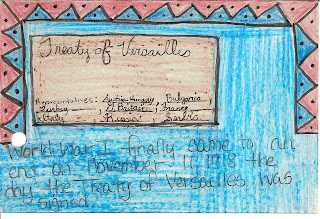 Treaty of Versailles
Representatives: Austria-Hungary, Bulgaria,
Turkey, G. Britain, France,
Italy, Russia, Serbia
World War I finally came to an
end on November 11, 1918 the
day the Treaty of Versailles was
signed.